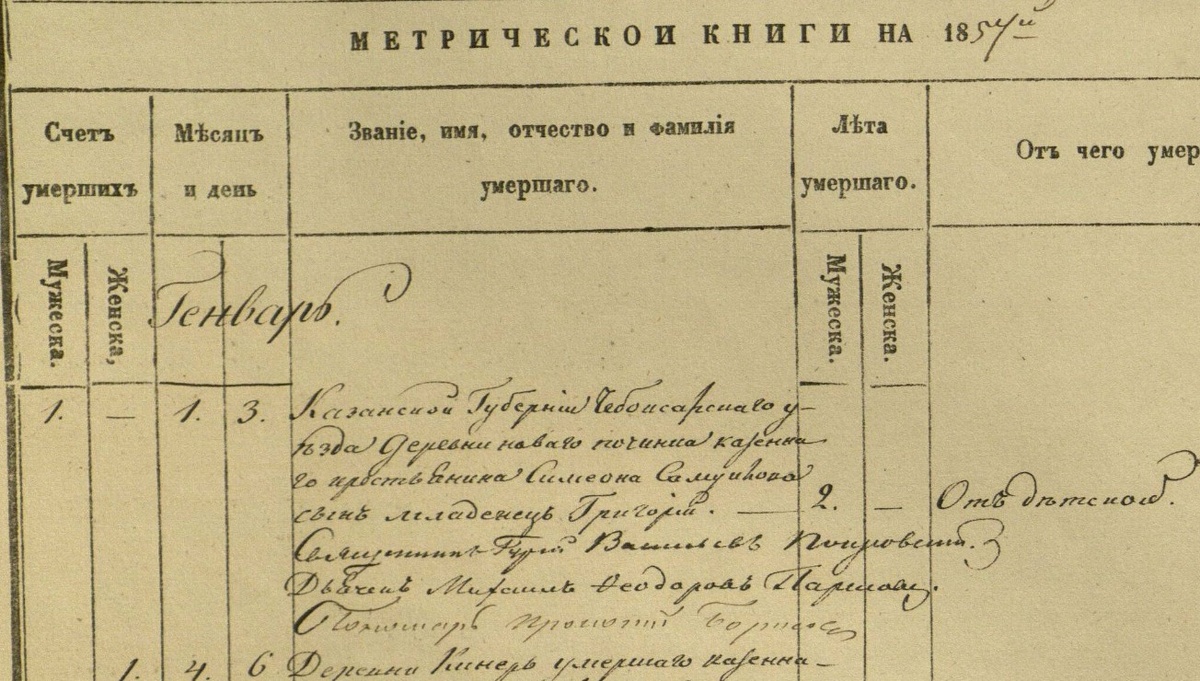 МЕТРИЧЕСКОЙ КНИГИ НА 1857й
Счетъ умершихъ
Мѣсяцъ и день
Званіе, имя, отчество и фамилія
умершаго.
Лѣта умершаго.
Отъ чего умер
Мужеска.
Женска,
Мужеска.
Женска.
Генварь.
1. — 1. 3. Казанской Губерніи Чебоксарскаго у-
ѣзда деревни новаго починка казенна
го крестьянина Симеона Самуилова
сынъ младенецъ Григорій. — 2. — Отъ дѣтской.
Священникъ Гурій Васильевъ Покровскій.
Дьячекъ Михаилъ Ѳеодоровъ
Пономарь Прокопій
1. 4. 6 Деревни Кинеръ умершаго казенна-